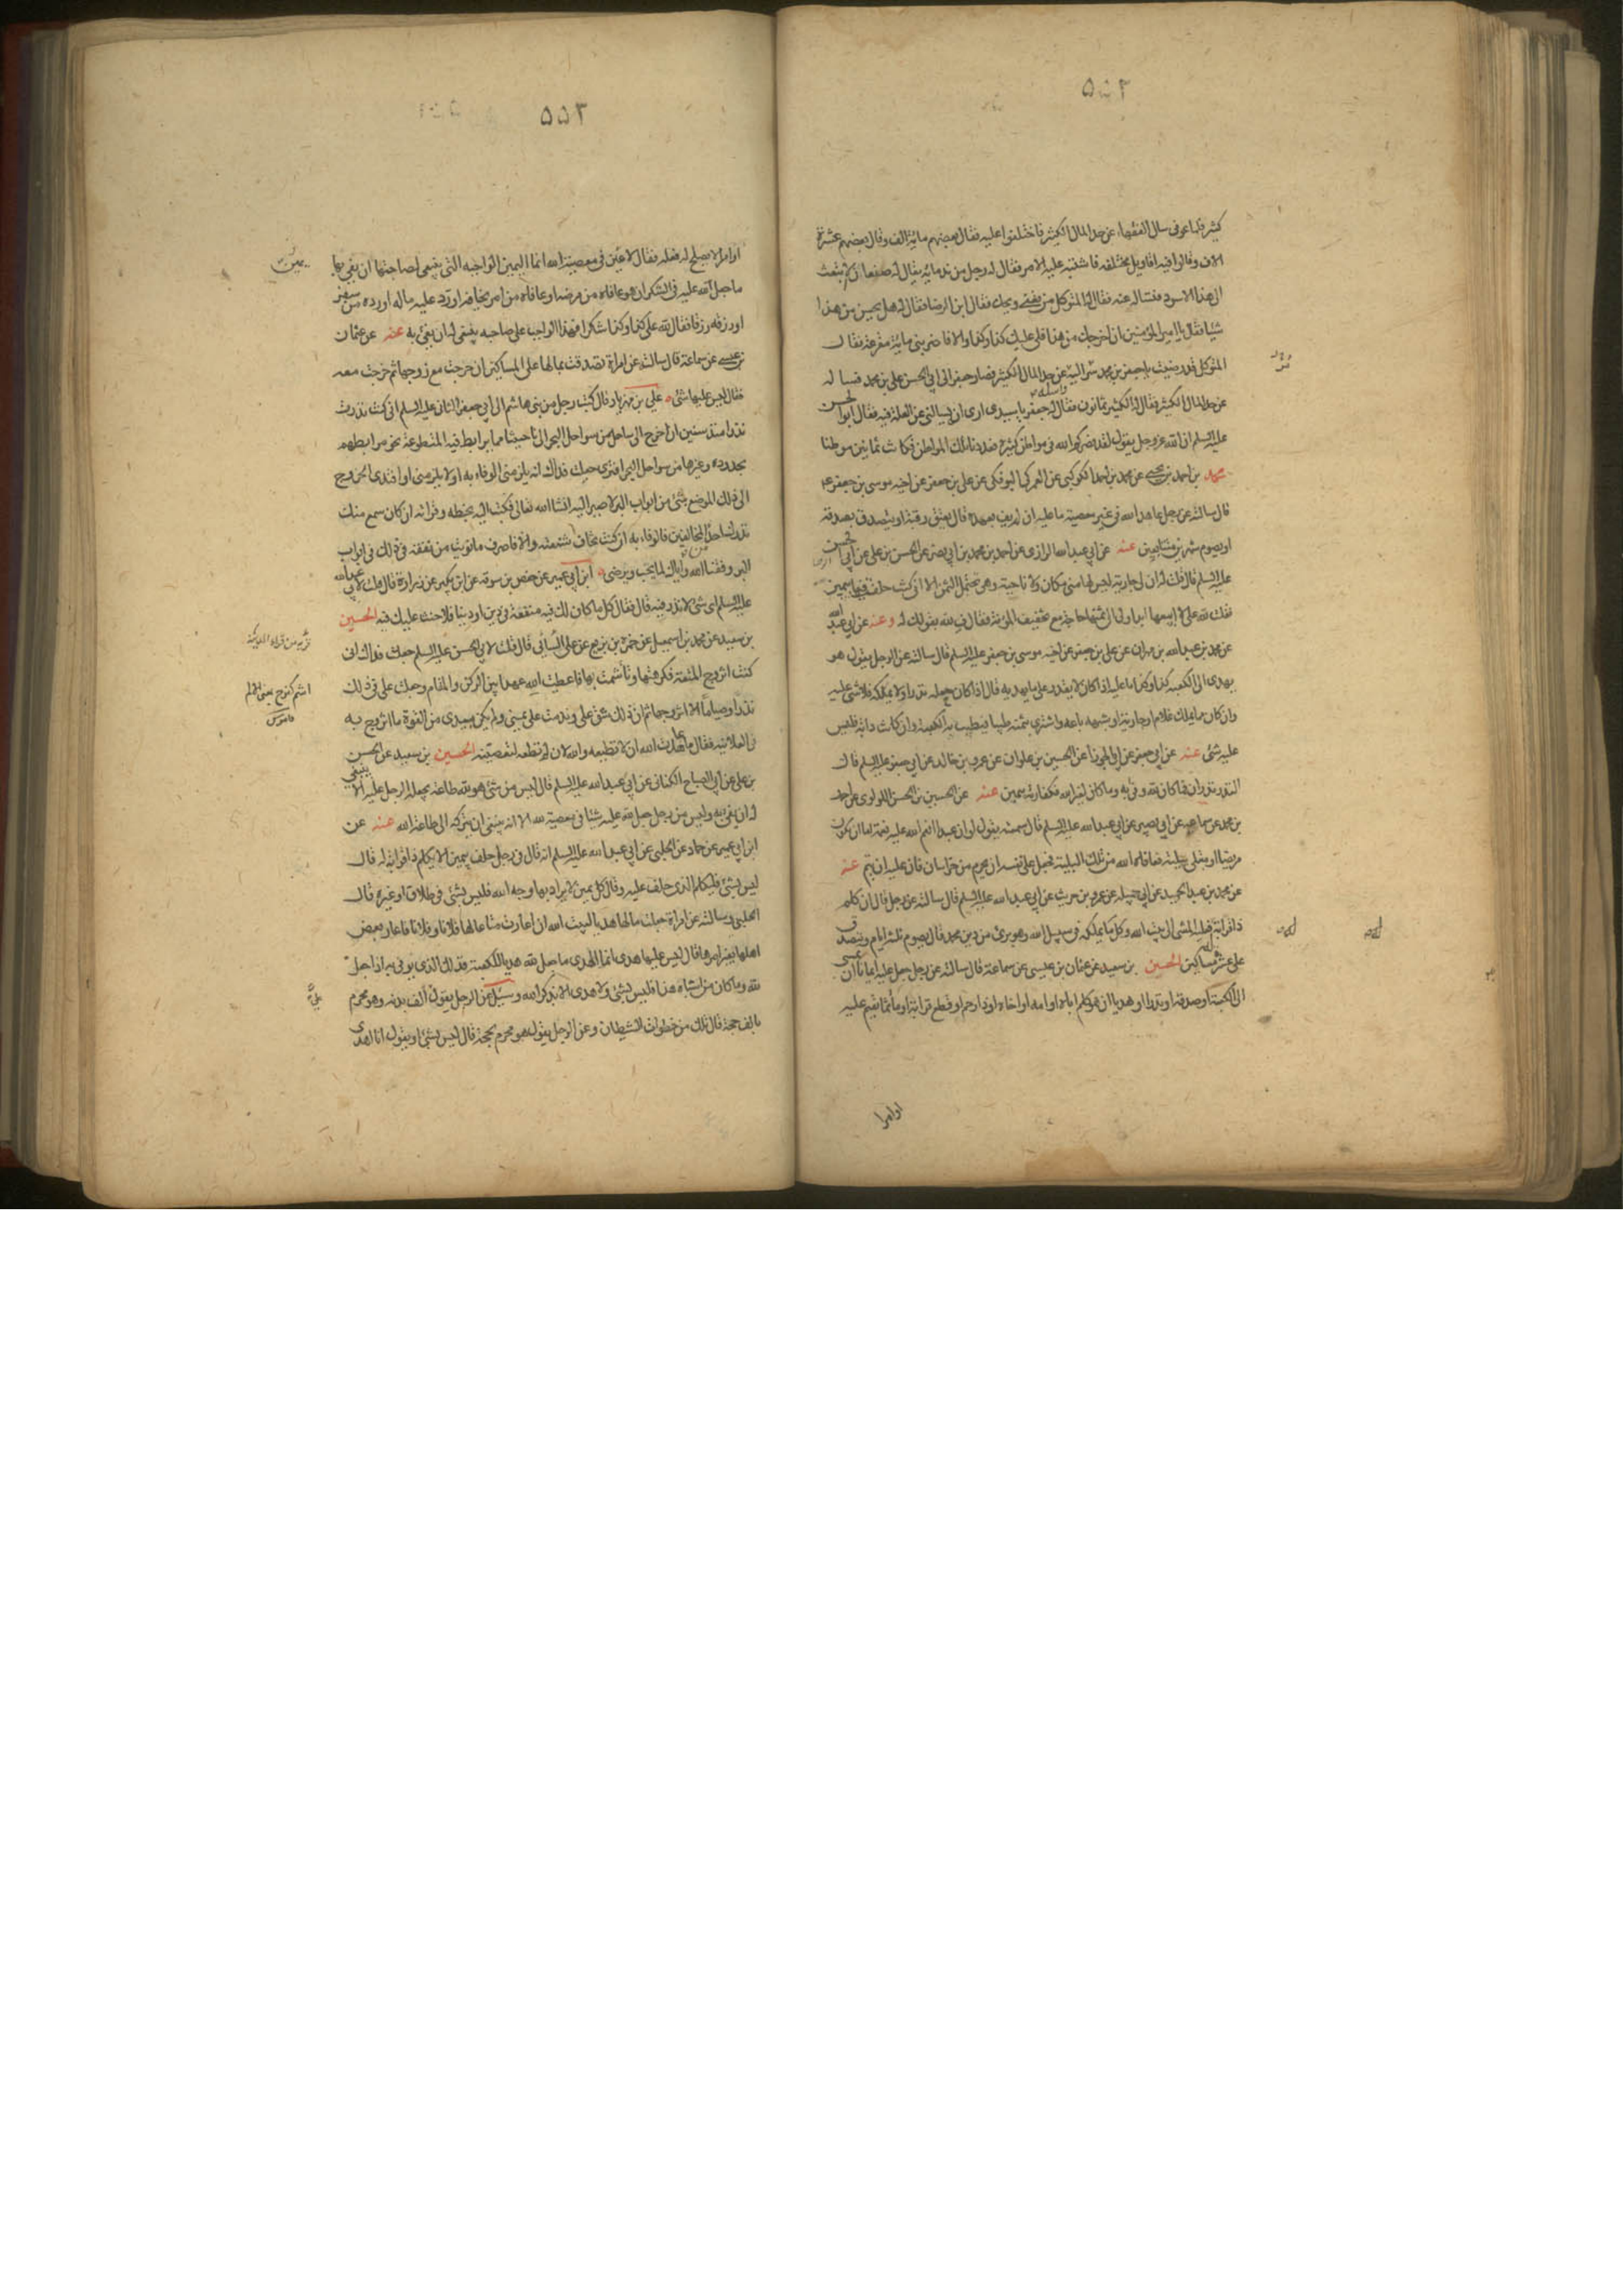 كثير فلما عوفى سال الفقهاء عن حد المال الكثير فاختلفوا عليه فقال بعضهم مائة الف وقال بعضهم عشرة
الاف وقالوا فيه اقاويل مختلفه فاشتبه عليه الامر فقال له رجل من ندمائه يقال له صفعان الا تبعث
الى هذا الاسود فتساله عنه فقال له المتوكل من تعنى ويحك فقال ابن الرضا فقال له هل يحسن من هذا
شيا فقال يا امير المؤمنين ان اخرجك من هذا فلى عليك كذا وكذا والا فاضربنى مائة مقرعة فقال
المتوكل قد رضيت يا جعفر بن محمد سر اليه عن حد المال الكثير فصار جعفر الى ابى الحسن على بن محمد فساله
عن حد المال الكثير فقال له الكثير ثمانون فقال له جعفر يا سيدى ارى انه يسالنى عن العلة فيه فقال ابو الحسن
عليه السلم ان الله عز وجل يقول لقد نصركم الله فى مواطن كثيرة فعددنا تلك المواطن فكانت ثمانين موطنا
محمد بن احمد بن يحيى عن محمد بن احمد الكوكبى عن العمركى البوفكى عن على بن جعفر عن اخيه موسى بن جعفر عه
قال سالته عن رجل عاهد الله فى غير معصية ما عليه ان لم يف بعهده قال يعتق رقبة او يتصدق بصدقة
او يصوم شهرين متتابعين عنه عن ابى عبد الله الرازى عن احمد بن محمد بن ابى نصر عن الحسن بن على عن ابى الحسن
عليه السلم قال قلت له ان لى جارية ليس لها منى مكان ولا ناحية وهى تحتمل الثمن الا انى كنت حلفت فيها بيمين
فقلت لله على لا ابيعها ابدا ولى الى ثمنها حاجة مع تخفيف المؤنة فقال ف لله بقولك له وعنه عن ابى عبد الله
عن محمد بن عبد الله بن مهران عن على بن جعفر عن اخيه موسى بن جعفر عليه السلم قال سالته عن الرجل يقول هو
يهدى الى الكعبه كذا وكذا ما عليه اذا كان لا يقدر على ما يهديه قال اذا كان جعله نذرا ولا يملكه فلا شئ عليه
وان كان مما يملك غلام او جارية او شبهه باعه واشترى بثمنه طيبا فيطيب به الكعبة وان كانت دابة فليس
عليه شئ عنه عن ابى جعفر عن ابى الجوزا عن الحسين بن علوان عن عمرو بن خالد عن ابى جعفر عليه السلم قال
النذر نذران فما كان لله وفى به وما كان لغير الله فكفارته يمين عنه عن الحسين بن الحسن اللولوى عن احمد
بن محمد عن سماعه عن ابى بصير عن ابى عبد الله عليه السلم قال سمعته يقول لو ان عبدا انعم الله عليه نعمة اما ان يكون
مريضا او مبتلى ببلية فعافاه الله من تلك البلية فجعل على نفسه ان يحرم من خراسان فان عليه ان يتم عنه
عن محمد بن عبد الحميد عن ابى جميله عن عمرو بن حريث عن ابى عبد الله عليه السلم قال سالته عن رجل قال ان كلم
ذا قرابة له فعليه المشى الى بيت الله وكل ما يملكه فى سبيل الله وهو برئ من دين محمد قال يصوم ثلثه ايام ويتصدق
على عشرة مساكين الحسين بن سعيد عن عثمان بن عيسى عن سماعة قال سالته عن رجل جعل عليه ايمانا ان يمشى
الى الكعبة او صدقة او نذرا او هديا ان هو كلم اباه او امه او اخاه او ذا رحم او قطع قرابة او ماثما يقيم عليه
اوامرا
٥٥٣
او امرا لا يصلح له فعله فقال لا يمين فى معصية الله انما اليمين الواجبه التى ينبغى لصاحبها ان يفى بها
ما جعل لله عليه فى الشكر ان هو عافاه من مرضه او عافاه من امر يخافه او رد عليه ماله او رده من سفر
او رزقه رزقا فقال لله على كذا وكذا شكرا فهذا الواجب على صاحبه ينبغى له ان يفى به عنه عن عثمان
بن عيسى عن سماعة قال سالته عن امراة تصدقت بمالها على المساكين ان خرجت مع زوجها ثم خرجت معه
فقال ليس عليها شئ على بن مهزيار قال كتب رجل من بنى هاشم الى ابى جعفر الثانى عليه السلم انى كنت نذرت
نذرا منذ سنين ان اخرج الى ساحل من سواحل البحر الى ناحيتنا مما يرابط فيه المتطوعة نحو مرابطهم
بجدده وغيرها من سواحل البحر افترى جعلت فداك انه يلزمنى الوفاء به او لا يلزمنى او افتدى الخروج
الى ذلك الموضع بشئ من ابواب البر لاصير اليه انشا الله تعالى فكتب اليه بخطه وقراته ان كان سمع منك
نذرك احد من المخالفين فالوفاء به ان كنت تخاف شنعته والا فاصرف ما نويت من نفقة فى ذلك فى ابواب
البر وفقنا الله واياك لما يحب ويرضى ابن ابى عمير عن حفص بن سوقه عن ابن بكير عن زرارة قال قلت لابى عبد الله
عليه السلم اى شئ لا نذر فيه قال فقال كل ما كان لك فيه منفعة فى دين او دنيا فلا حنث عليك فيه الحسين
بن سعيد عن محمد بن اسمعيل عن حمزه بن بزيع عن على السائى قال قلت لابى الحسن عليه السلم جعلت فداك انى
كنت اتزوج المتعة فكرهتها وتاثمت بها فاعطيت الله عهدا بين الركن والمقام وجعلت على فى ذلك
نذرا وصياما الا اتزوجها ثم ان ذلك شق على وندمت على يمينى ولم يكن بيدى من القوة ما اتزوج به
فى العلانيه فقال عاهدت الله ان لا تطيعه والله لان لم تطعه لتعصينه الحسين بن سعيد عن الحسن
بن على عن ابى الصباح الكنانى عن ابى عبد الله عليه السلم قال ليس من شئ هو لله طاعة يجعله الرجل عليه الا ينبغى
له ان يفى به وليس من رجل جعل لله عليه شئا فى معصية الله الا انه ينبغى ان يتركه الى طاعة الله عنه عن
ابن ابى عمير عن حماد عن الحلبى عن ابى عبد الله عليه السلم انه قال فى رجل حلف بيمين الا يكلم ذا قرابة له قال
ليس بشئ فليكلم الذى حلف عليه وقال كل يمين لا يراد بها وجه الله فليس بشئ فى طلاق او غيره قال
الحلبى وسالته عن امراة جعلت مالها هديا لبيت الله ان اعارت متاعا لها فلانا وفلانا فاعار بعض
اهلها بغير امرها قال ليس عليها هدى انما الهدى ما جعل لله هديا للكعبة فذلك الذى يوفى به اذا جعل
لله وما كان من اشباه هذا فليس بشئ ولا هدى لا يذكر الله وسئل عن الرجل يقول الف بدنه وهو محرم
بالف حجة قال تلك من خطوات الشيطان وعن الرجل يقول هو محرم بحجة قال ليس بشئ او يقول انا اهدى